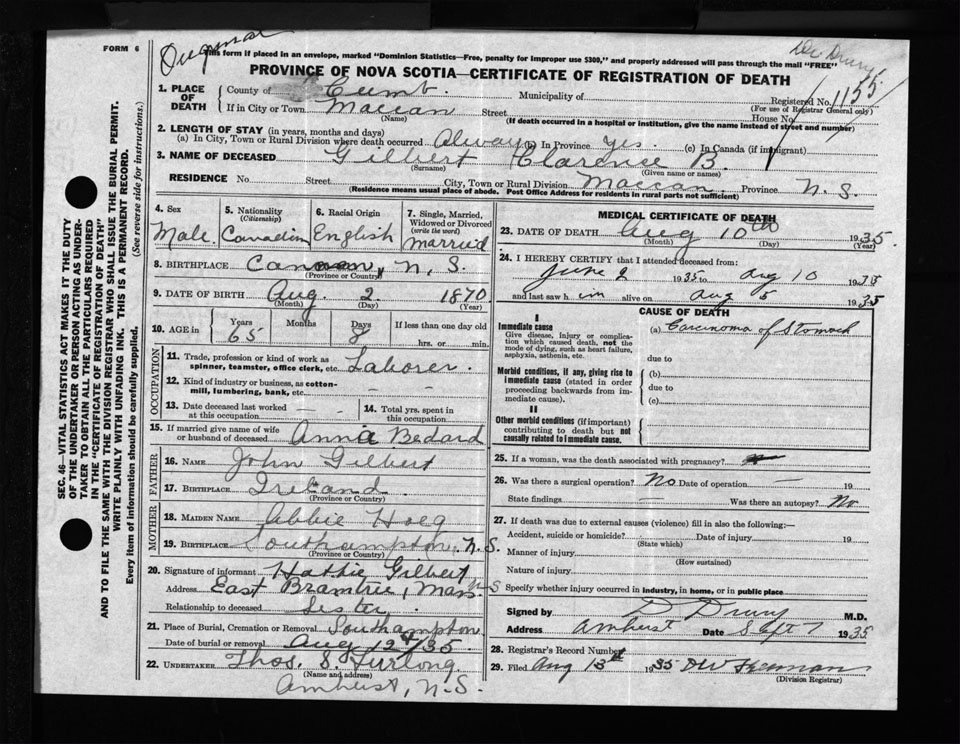 FORM 6
This form if placed in an envelope, marked "Dominion Statistics—Free, penalty for improper use $300," and properly addressed will pass through the mail "FREE"
Dr Drury
PROVINCE OF NOVA SCOTIA—CERTIFICATE OF REGISTRATION OF DEATH
1. PLACE OF DEATH
County of Cumb. Municipality of Registered No. 1155
(For use of Registrar General only)
If in City or Town Maccan Street House No.
(Name) (If death occurred in a hospital or institution, give the name instead of street and number)
2. LENGTH OF STAY (in years, months and days)
(a) In City, Town or Rural Division where death occurred Always (b) In Province Yes. (c) In Canada (if immigrant)
3. NAME OF DECEASED Gilbert Clarence B.
(Surname) (Given name or names)
RESIDENCE No. Street City, Town or Rural Division Maccan. Province N.S.
(Residence means usual place of abode. Post Office Address for residents in rural parts not sufficient)
4. Sex
Male
5. Nationality
(Citizenship)
Canadian
6. Racial Origin
English
7. Single, Married, Widowed or Divorced
(write the word)
married
8. BIRTHPLACE N.S.
(Province or Country)
9. DATE OF BIRTH Aug. 2. 1870
(Month) (Day) (Year)
10. AGE in Years Months Days If less than one day old
65 8 hrs. or min.
OCCUPATION
11. Trade, profession or kind of work as spinner, teamster, office clerk, etc. Laborer.
12. Kind of industry or business, as cotton-mill, lumbering, bank, etc. — —
13. Date deceased last worked at this occupation — —
14. Total yrs. spent in this occupation
15. If married give name of wife or husband of deceased Annie Bedard
FATHER
16. NAME John Gilbert
17. BIRTHPLACE Ireland
(Province or Country)
MOTHER
18. MAIDEN NAME Abbie Hoeg
19. BIRTHPLACE Southampton, N.S.
(Province or Country)
20. Signature of informant Hattie Gilbert
Address East Braintree, Mass
Relationship to deceased Sister
21. Place of Burial, Cremation or Removal Southampton N.S
Date of burial or removal Aug 12th/35
22. UNDERTAKER Thos. S. Furlong
(Name and address)
Amherst, N.S.
MEDICAL CERTIFICATE OF DEATH
23. DATE OF DEATH Aug 10th 1935.
(Month) (Day) (Year)
24. I HEREBY CERTIFY that I attended deceased from:
June 2 1935 to Aug 10 1935
and last saw him alive on Aug 5 1935
CAUSE OF DEATH
I
Immediate cause
Give disease, injury or complication which caused death, not the mode of dying, such as heart failure, asphyxia, asthenia, etc.
(a) Carcinoma of Stomach
due to
Morbid conditions, if any, giving rise to immediate cause (stated in order proceeding backwards from immediate cause).
(b)
due to
(c)
II
Other morbid conditions (if important) contributing to death but not causally related to immediate cause.
25. If a woman, was the death associated with pregnancy?
26. Was there a surgical operation? No Date of operation — 19
State findings — Was there an autopsy? No
27. If death was due to external causes (violence) fill in also the following:—
Accident, suicide or homicide? Date of injury 19
(State which)
Manner of injury
(How sustained)
Nature of injury
Specify whether injury occurred in industry, in home, or in public place
Signed by D Drury M.D.
Address Amherst Date Sept 7 1935
28. Registrar's Record Number
29. Filed Aug 13th 1935
(Division Registrar)
SEC. 46—VITAL STATISTICS ACT MAKES IT THE DUTY
OF THE UNDERTAKER OR PERSON ACTING AS UNDER-
TAKER TO OBTAIN ALL THE PARTICULARS REQUIRED
IN THE "CERTIFICATE OF REGISTRATION OF DEATH"
AND TO FILE THE SAME WITH THE DIVISION REGISTRAR WHO SHALL ISSUE THE BURIAL PERMIT.
WRITE PLAINLY WITH UNFADING INK. THIS IS A PERMANENT RECORD.
Every item of information should be carefully supplied. (See reverse side for instructions.)